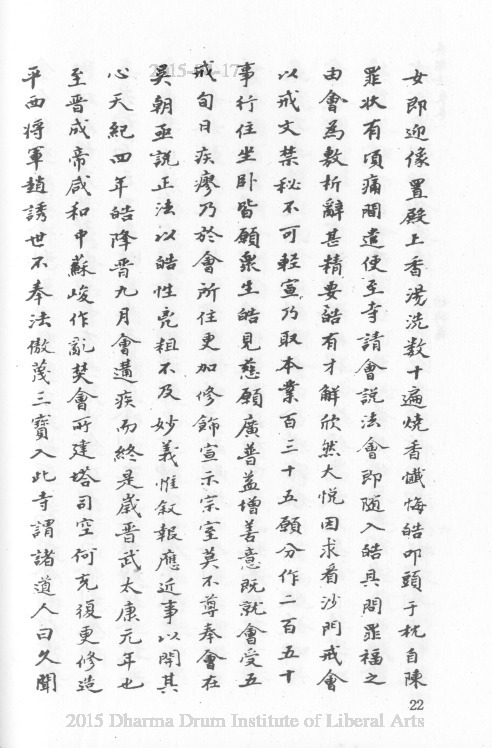 女即迎像置殿上香湯洗数十遍燒香懺悔皓叩頭于枕自陳
罪状有頃痛間遣使至寺請會説法會即随入皓具問罪福之
由會為敷析辭甚精要皓有才解欣然大悦因求看沙門戒會
以戒文禁秘不可輕宣乃取本業百三十五願分作二百五十
事行住坐卧皆願衆生皓見慈願廣普益增善意既就會受五
戒旬日疾瘳乃於會所住更加修飾宣示宗室莫不尊奉會在
吴朝亟説正法以皓性㐫粗不及妙義惟叙報應近事以開其
心天紀四年皓降晋九月會遘疾而終是歲晋武太康元年也
至晋成帝咸和中蘇峻作亂焚會所建塔司空何充復更修造
平西将軍趙誘世不奉法傲蔑三寶入此寺謂諸道人曰久聞
22
2015-03-17
2015 Dharma Drum Institute of Liberal Arts